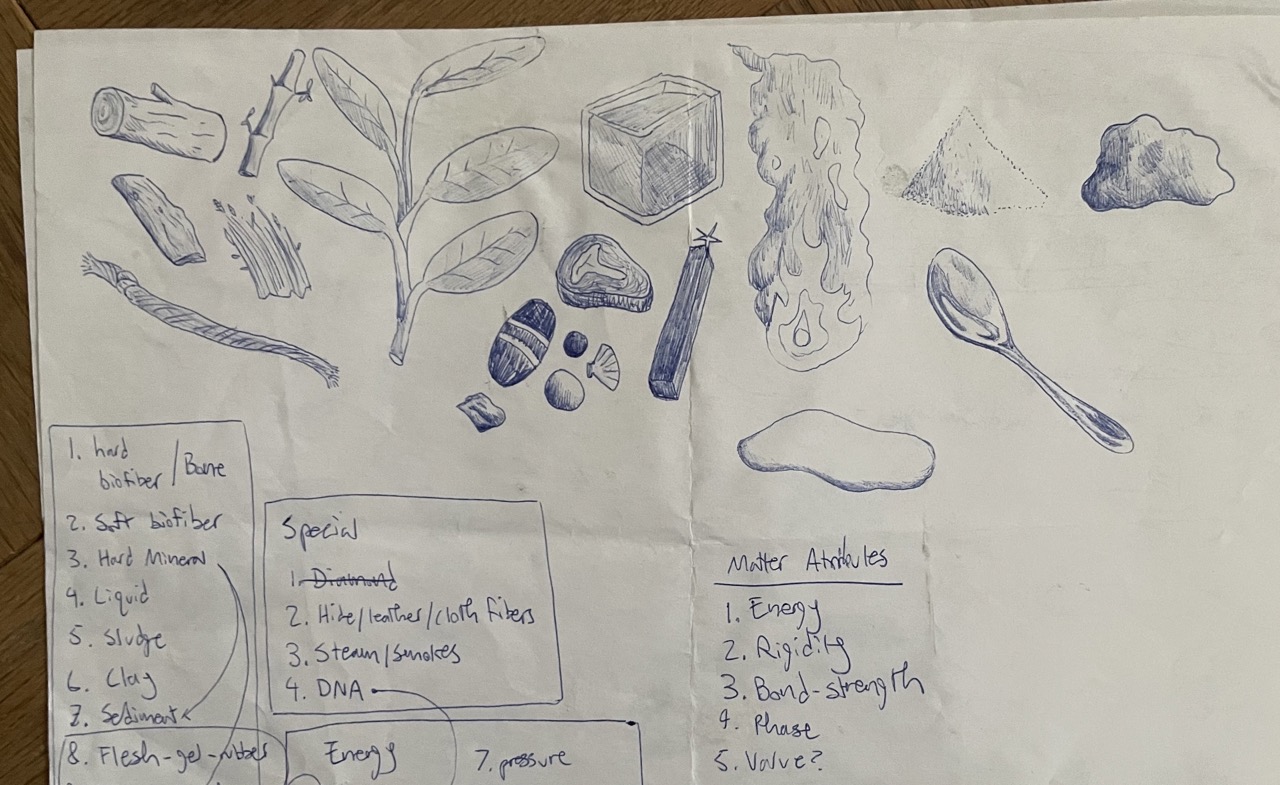 1. hard
biofiber / Bone
2. Soft biofiber
3. Hard Mineral
4. Liquid
5. Sludge
6. Clay
7. Sediment
8. Flesh-gel-rubber
Special
1. Diamond
2. Hide/leather/cloth fibers
3. Steam/smokes
4. DNA
Energy
7. pressure
Matter Attributes
1. Energy
2. Rigidity
3. Bond-strength
4. Phase
5. Valve?